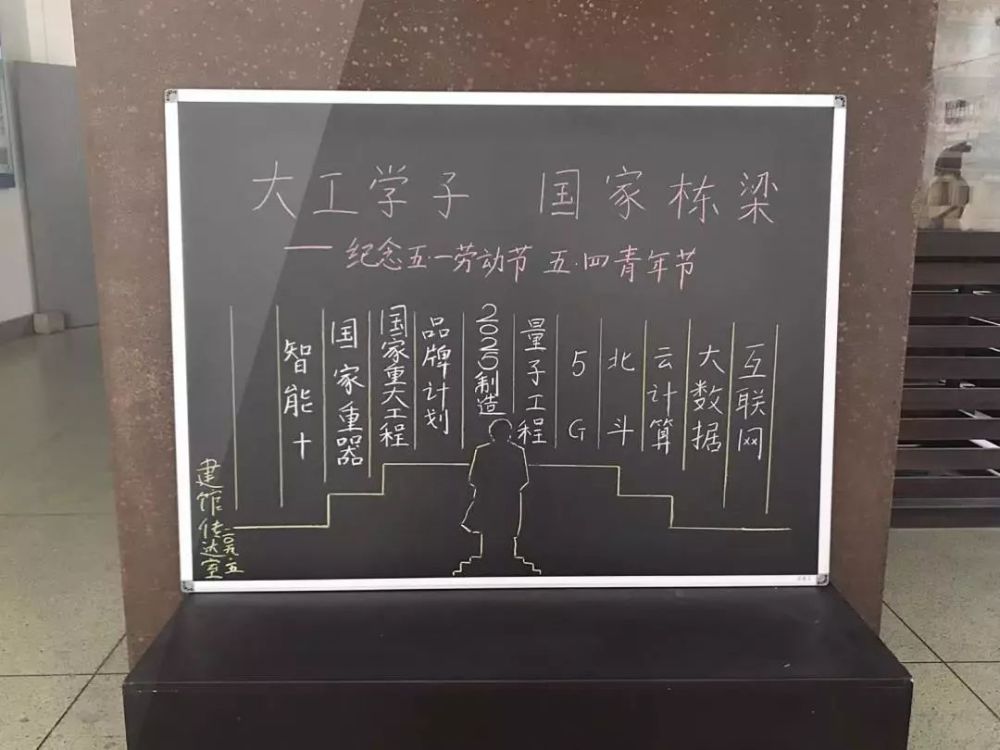 大工学子 国家栋梁
——纪念五·一劳动节 五·四青年节
智能+
国家重器
国家重大工程
品牌计划
2025制造
量子工程
5G
北斗
云计算
大数据
互联网
建馆传达室
二〇一九·五